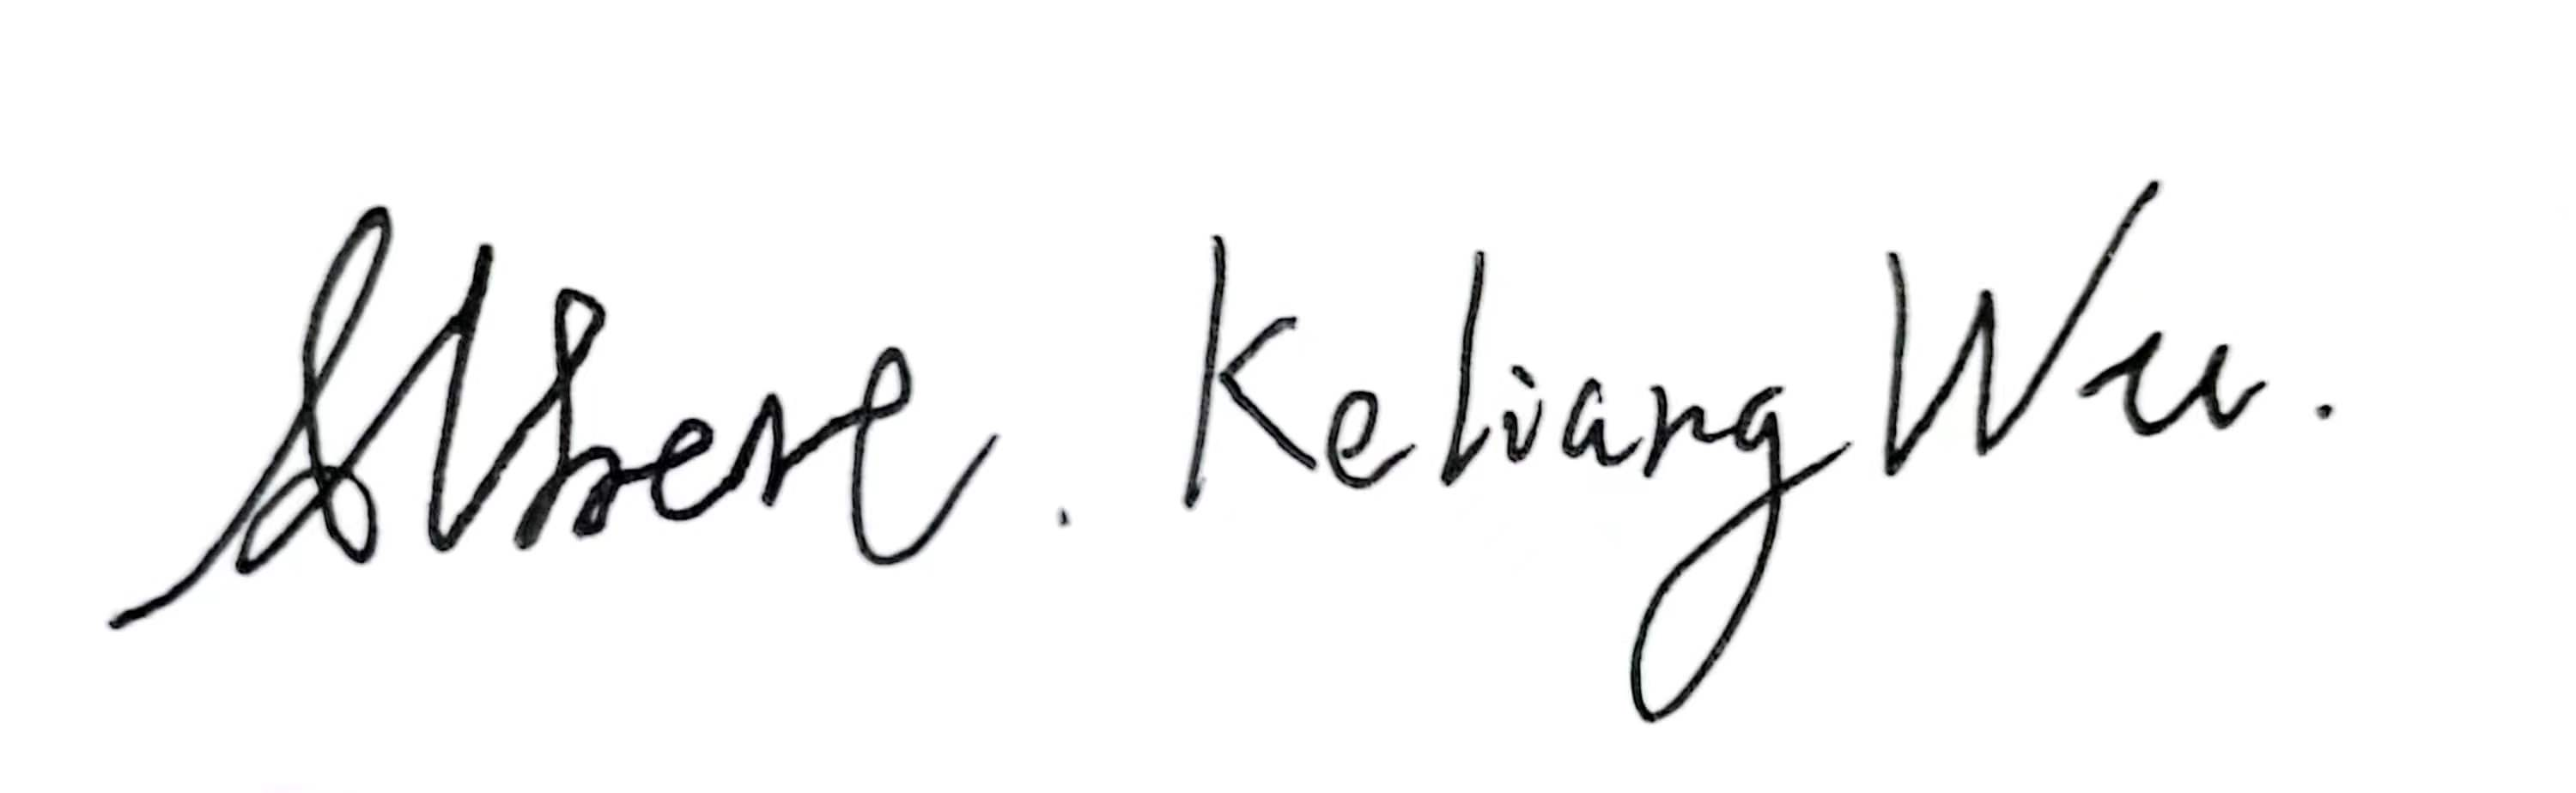 Albert. Keliang Wu.